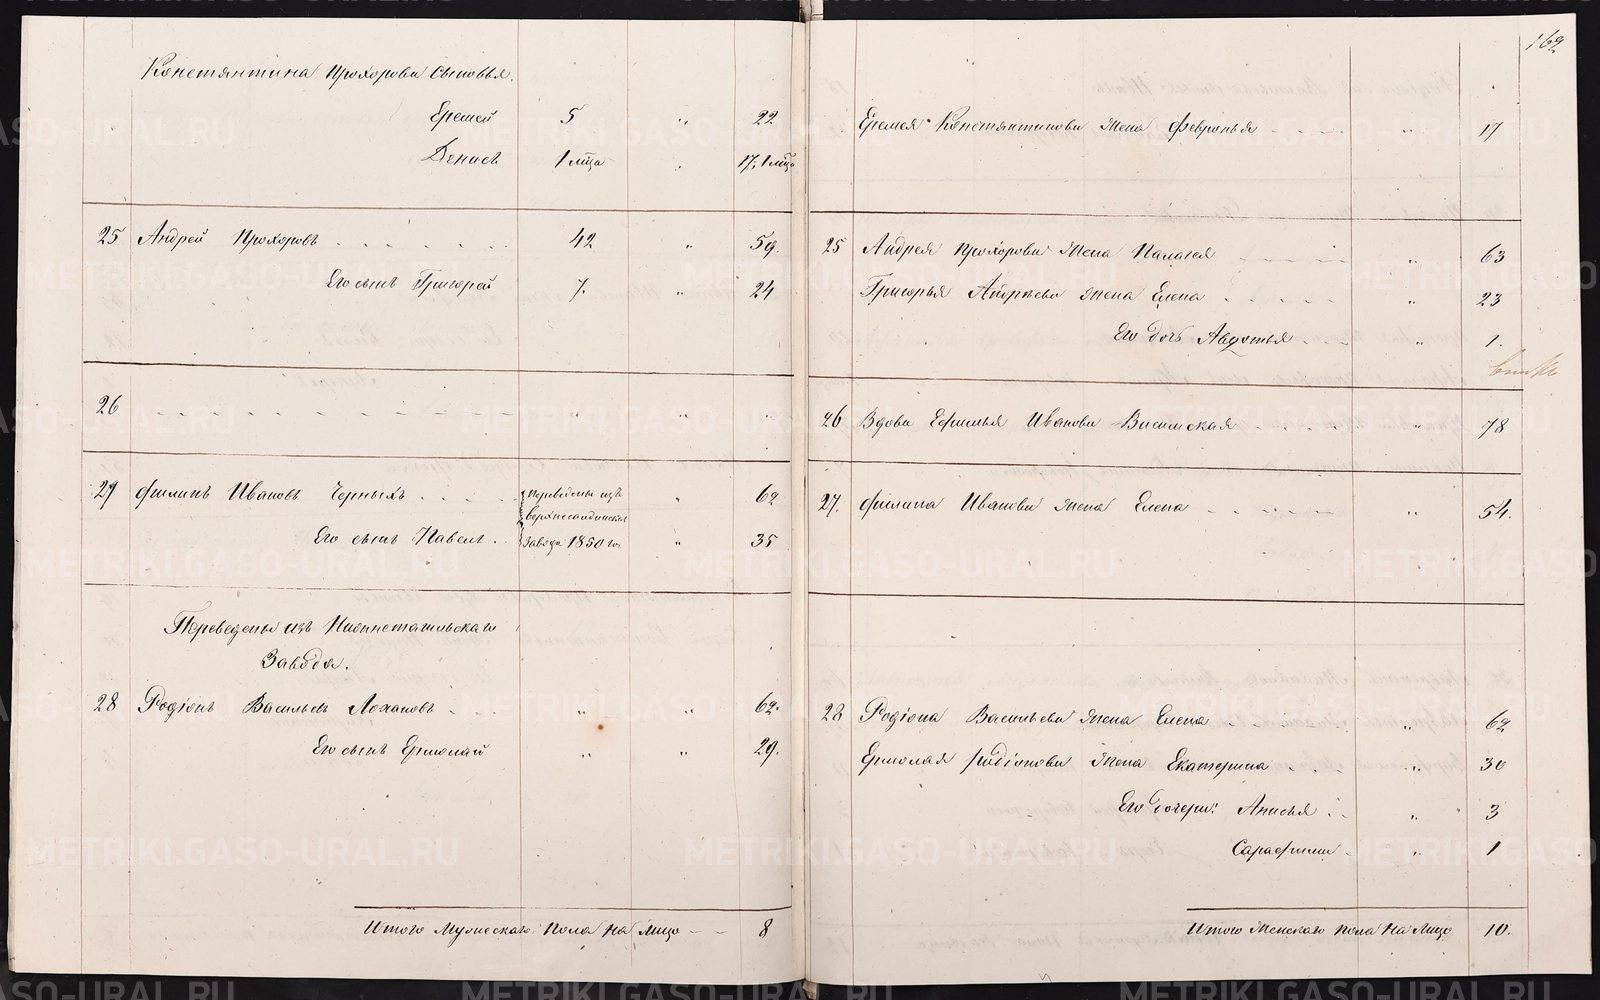 162
Константина Прохорова сыновья.
Еремей 5 " 22
Денисъ 1 мца . 17, 1 мца
25 Андрей Прохоровъ 42 " 59.
Его сынъ Григорей 7. " 24
26 " " "
27 Филипъ Ивановъ Черныхъ Переведены изъ " 62
верхнесалдинскаго
Его сынъ Павелъ завода 1850 го " 35
Переведены изъ Нижнетагильскаго
Завода.
28 Родіонъ Васильевъ Лохановъ " " 62.
Его сынъ Ермолай " " 29.
Итого Мужескаго Пола на Лицо 8
Еремея Константинова жена Февронья " 17
25 Андрея Прохорова жена Палагея " 63
Григорья Андреева жена Елена " 23
Его дочь Авдотья " 1.
26 Вдова Ефимья Иванова " 78
27. Филипа Иванова жена Елена " 54.
28 Родіона Васильева жена Елена " 62
Ермолая Родіонова жена Екатерина " 30
Его дочери: Анисья " 3
Сарафима " 1
Итого Женскаго пола на Лицо 10.
METRIKI.GASO-URAL.RU